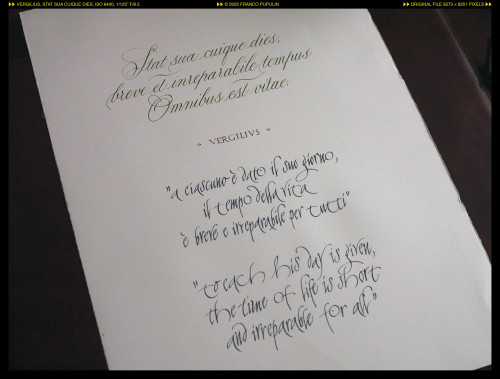 ▶▶ VERGILIUS, STAT SUA CUIQUE DIES. ISO 6400, 1/125" F/6.3
▶▶ © 2025 FRANCO PUPULIN
▶▶ ORIGINAL FILE 8273 × 6201 PIXELS ▶▶
Stat sua cuique dies,
breve et inreparabile tempus
Omnibus est vitae.
- VERGILIVS -
"a ciascuno è dato il suo giorno,
il tempo della vita
è breve e irreparabile per tutti"
"to each his day is given,
the time of life is short
and irreparable for all"